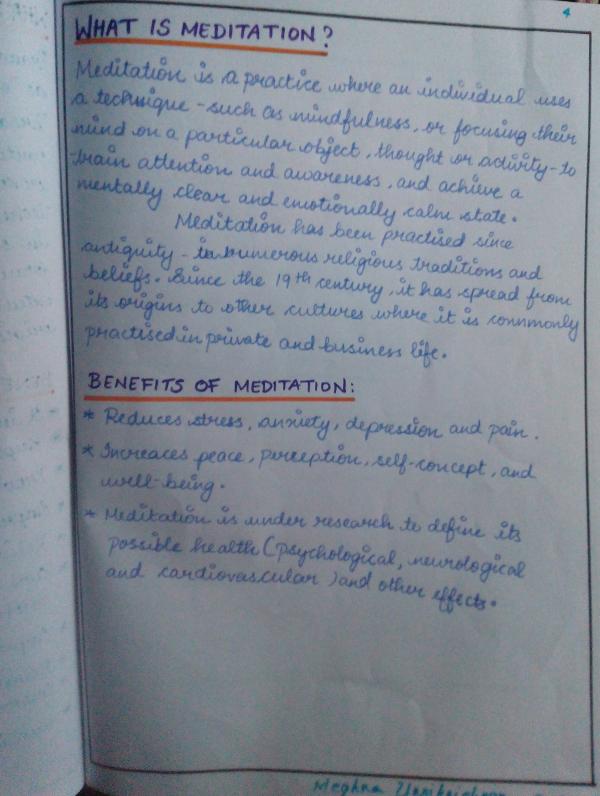 4
WHAT IS MEDITATION?
Meditation is a practice where an individual uses
a technique - such as mindfulness, or focusing their
mind on a particular object, thought or activity - to
train attention and awareness, and achieve a
mentally clear and emotionally calm state.
Meditation has been practised since
antiquity - in numerous religious traditions and
beliefs. Since the 19th century, it has spread from
its origins to other cultures where it is commonly
practised in private and business life.
BENEFITS OF MEDITATION:
* Reduces stress, anxiety, depression and pain.
* Increases peace, perception, self-concept, and
well-being.
* Meditation is under research to define its
possible health (psychological, neurological
and cardiovascular) and other effects.
Meghna